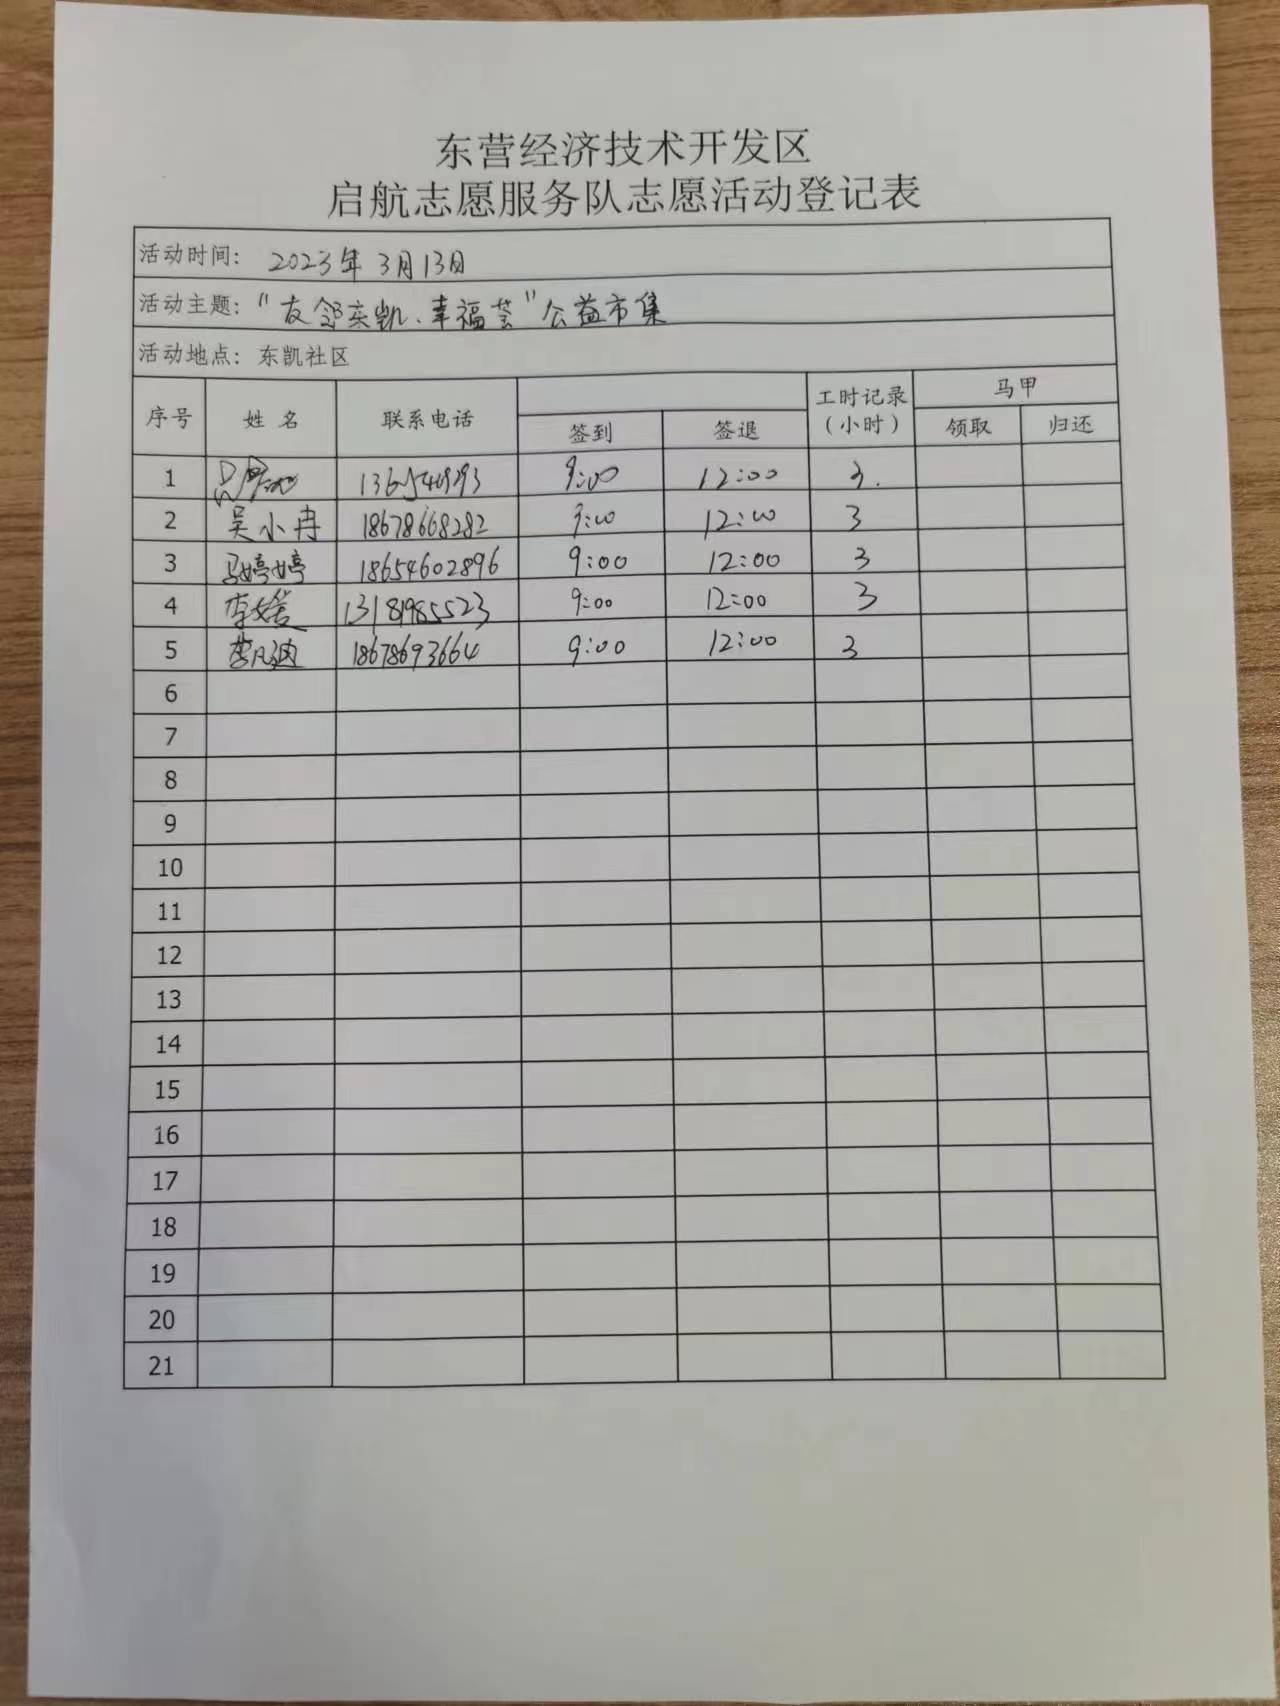 东营经济技术开发区
启航志愿服务队志愿活动登记表
活动时间： 2023年3月13日
活动主题： “友邻东凯、幸福荟”公益市集
活动地点： 东凯社区
序号 姓名 联系电话 签到 签退 工时记录（小时） 马甲 领取 归还
1 9:00 12:00 3.
2 吴小冉 18678668282 9:00 12:00 3
3 马婷婷 18654602896 9:00 12:00 3
4 李媛 13181985523 9:00 12:00 3
5 18678693664 9:00 12:00 3
6
7
8
9
10
11
12
13
14
15
16
17
18
19
20
21